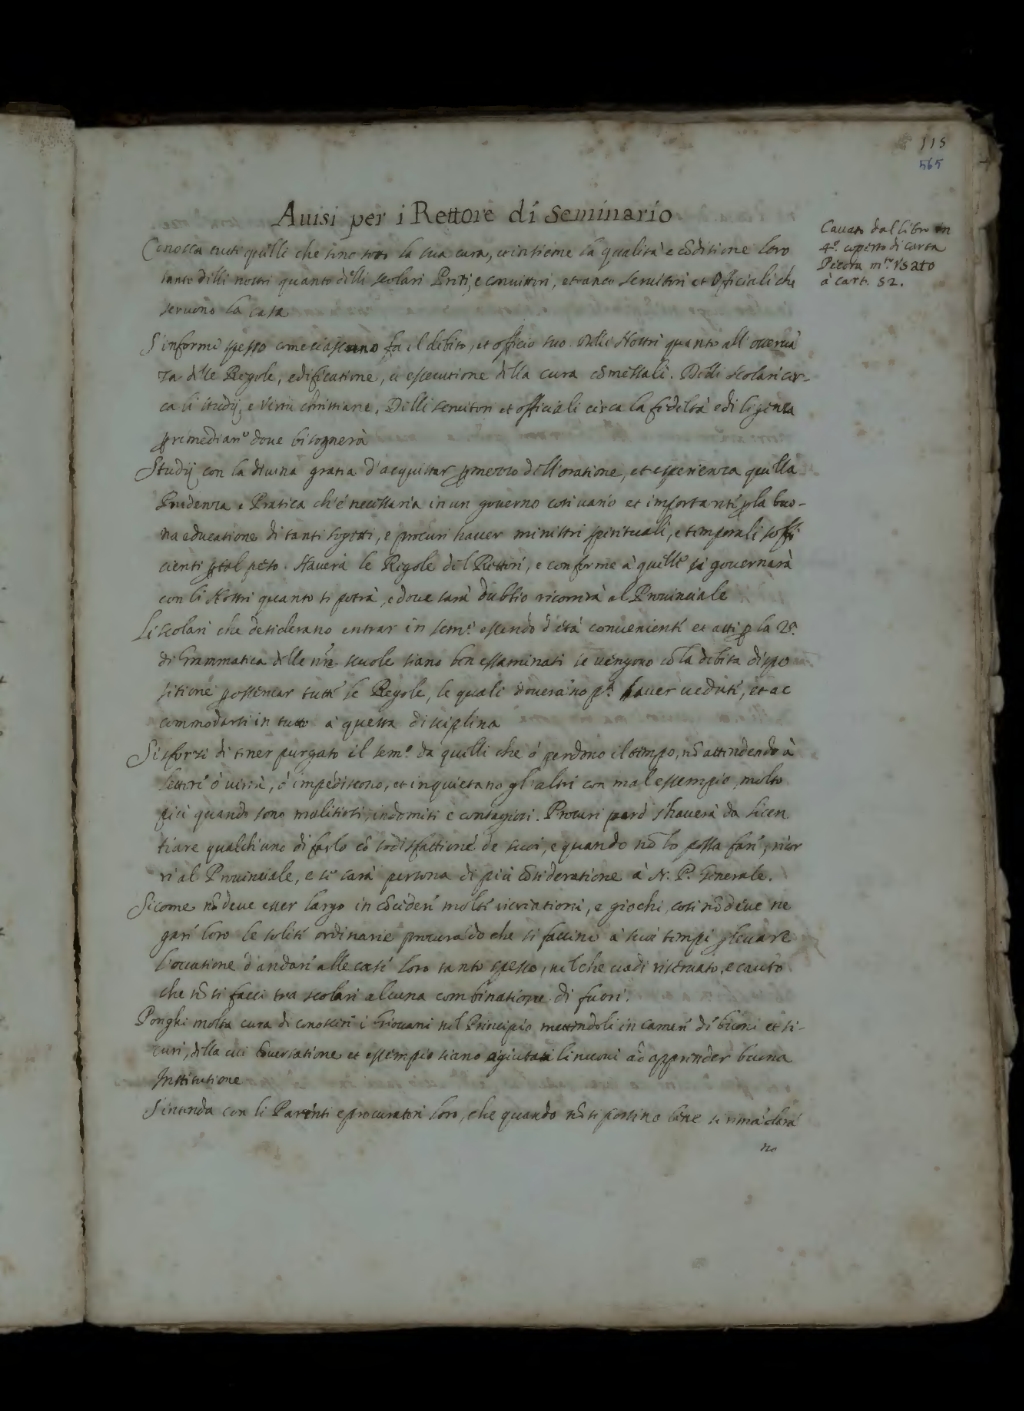 115
565
Auisi per i Rettore di Seminario
Cauato dal libro in
4º. coperto di carta
Pecora
à cart. 52.
Conosca tutti quelli che sono sotto la sua cura, et insieme la qualità e cõditione loro
tanto delli nostri quanto delli scolari Preti, e conuittori, et anco seruitori et Officiali che
seruono la casa
S'informi spesso come ciascuno fa il debito, et officio suo. Delli Nostri quanto all' osserua
za delle Regole, edificatione, et essecutione della cura cõmessali. Delli scolari cir-
ca li studij, e virtù christiane, Delli seruitori et officiali circa la fedeltà e diligenza
dove bisognerà
Studij con la diuina gratia d'acquistar mezzo dell'oratione, et esperienza quella
Prudenza e Pratica ch'è necessaria in un gouerno così uario et importante la buo-
na educatione di tanti sogetti, e procuri hauer ministri spirituali, e temporali soffi
cienti tal peso. Hauerà le Regole del Rettori, e conforme à quelle si gouernarà
con li Nostri quanto si potrà, e doue sarà dubbio ricorrerà al Prouinciale
Li scolari che desiderano entrar in semº. essendo d'età conueniente et atti la 2ª.
di Grammatica delle nre scuole siano ben essaminati se uengono cõ la debita dispo
sitione osseruar tutte le Regole, le quali doueranno pª. hauer uedute, et ac
commodarsi in tutto a questa disciplina
Si sforzi di tener purgato il semº. da quelli che ò perdono il tempo, nõ attendendo à
lettere ò uirtù, ò impediscono, et inquietano gl' altri con mal essempio, molto
più quando sono malitiosi, indomiti e contagiosi. Procuri però s'hauerà da licen
tiare qualch'uno di farlo cõ sodisfattione de suoi, e quando nõ lo possa fare, ricor
ri al Prouinciale, e se sarà persona di più cõsideratione à N. P. Generale.
Si come nõ deue esser largo in cõcedere molte ricreationi, e giochi, così nõ deue ne
gare loro le solite ordinarie procurãdo che si faccino a suoi tempi leuare
l'occatione d'andare alle case loro tanto spesso, nel che uadi riseruato, e cauto
che nõ si facci tra scolari alcuna combinatione di fuori.
Ponghi molta cura di conoscere i Giouani nel Principio mettendoli in camere di buoni et si-
curi, della cui cõuersatione et essempio siano agiutati li nuoui ad apprender buona
Institutione
S'intenda con li Parenti e procuratori loro, che quando nõ si portino bene si rimãdarà
no